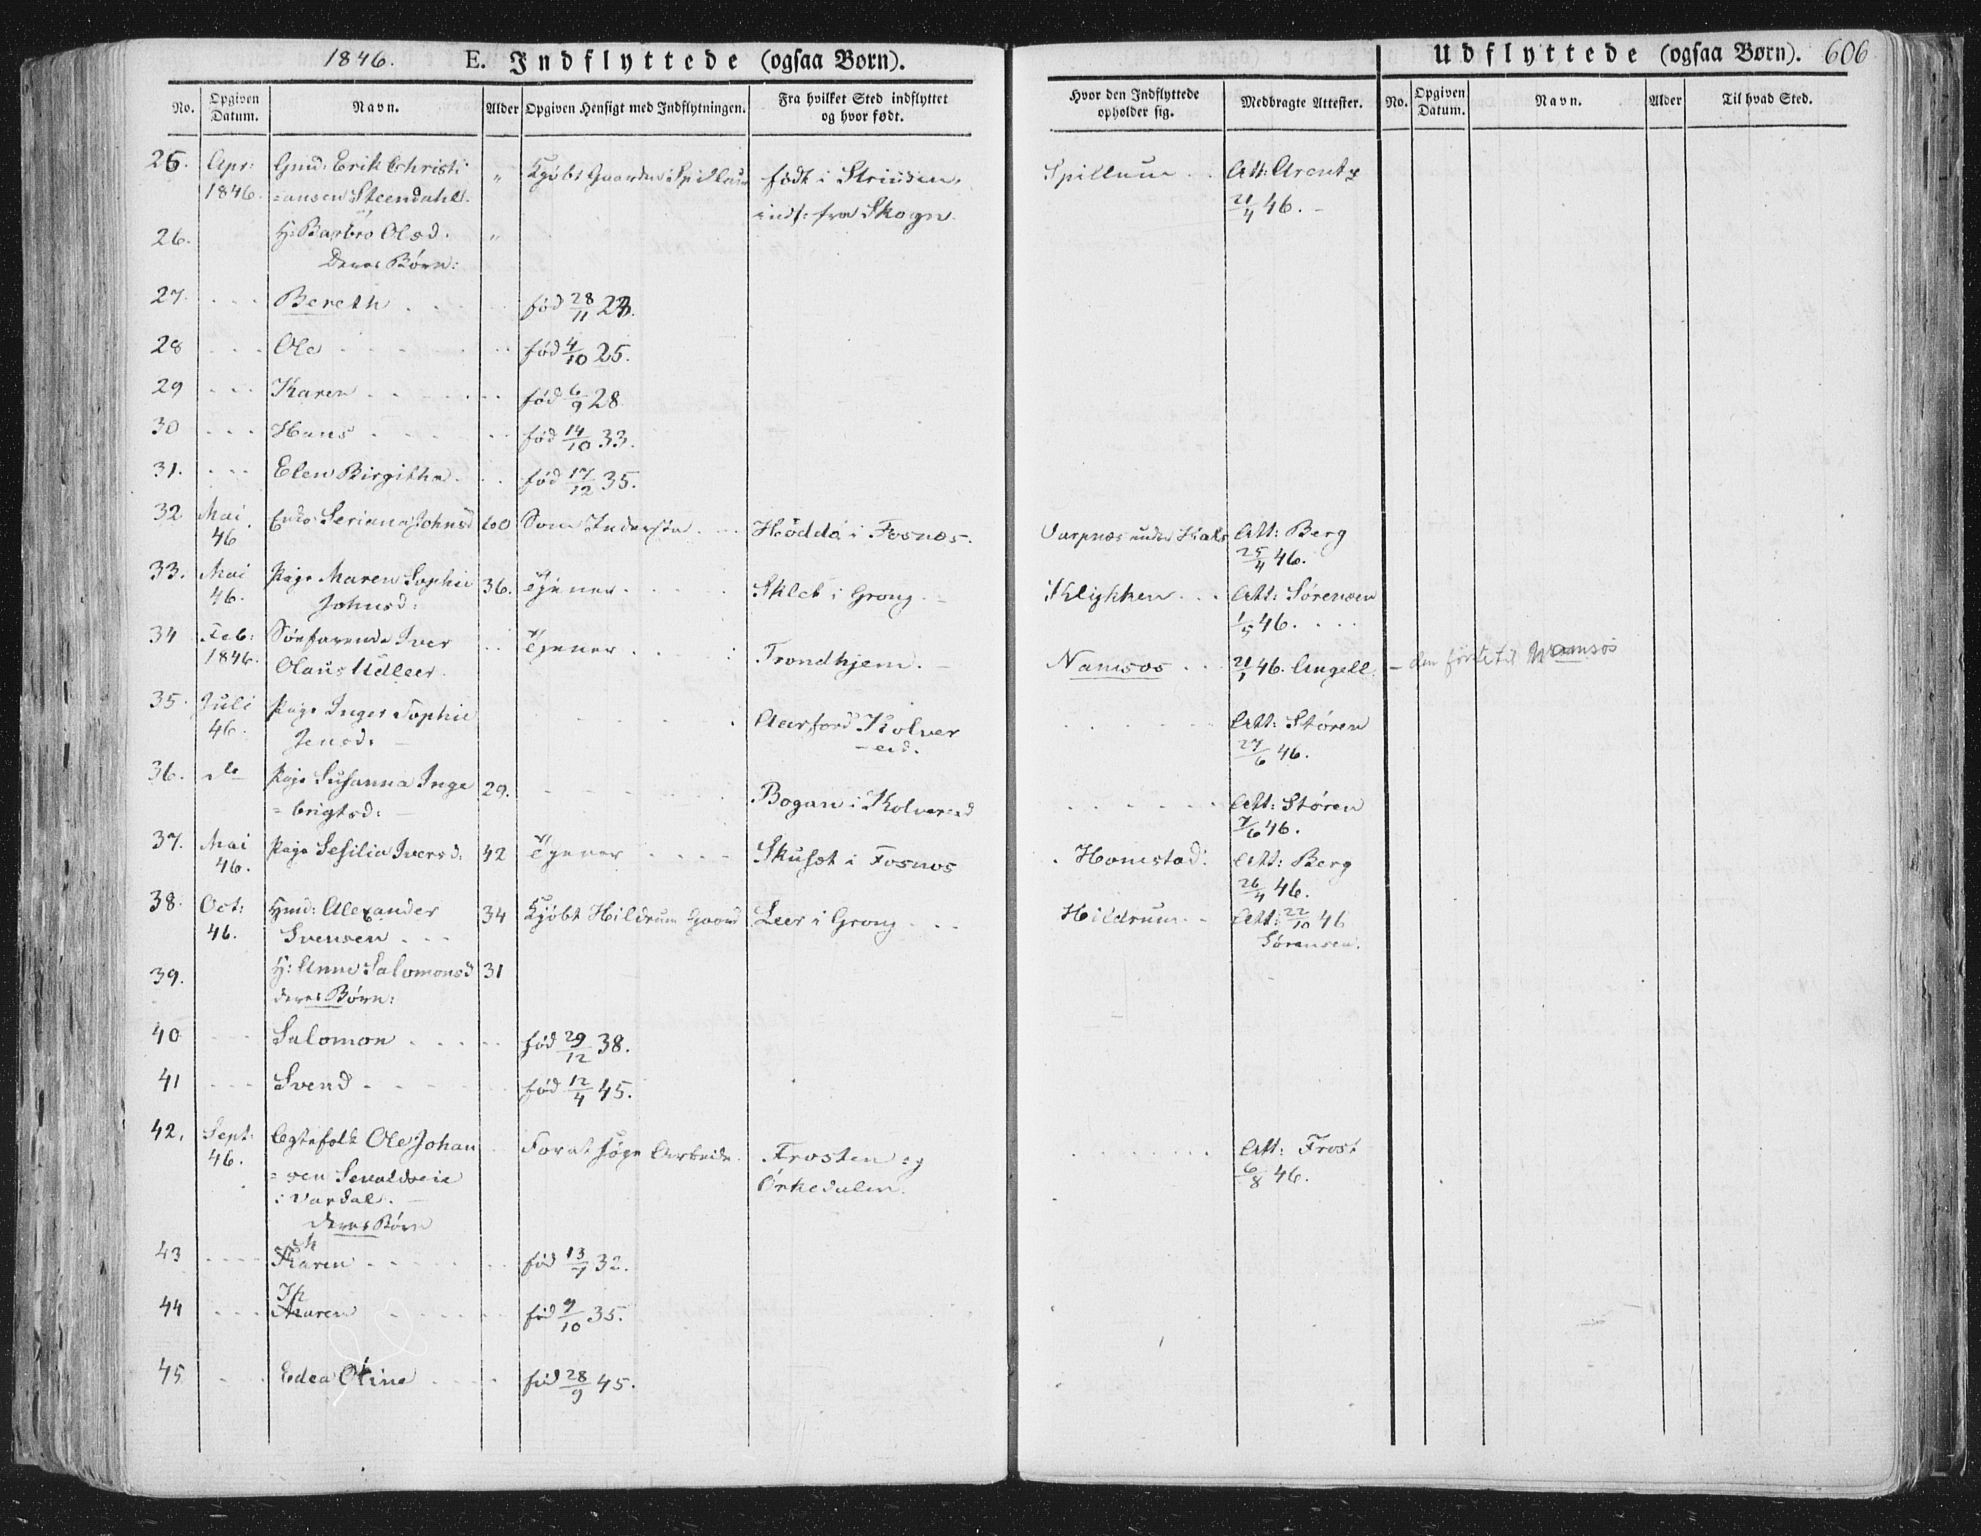 1846. E. Indflyttede (ogsaa Børn).
Udflyttede (ogsaa Børn). 606
No. Opgiven Datum. Navn. Alder Opgiven Hensigt med Indflytningen. Fra hvilket Sted indflyttet og hvor født.
Hvor den Indflyttede opholder sig. Medbragte Attester. No. Opgiven Datum. Navn. Alder Til hvad Sted.
25. Apr: Gmd: Erik Christi " Kjøbt Gaarden Spillum født i Strinden, Spillum Att: Arentz
1846. =ansen Steendahl. indf: fra Skogn. 21/4 46. -
26. H: Barbro Olsd. "
deres Børn:
27. Bereth fød 28/11 23.
28 Ole fød 4/10 25.
29 Karen fød 6/9 28
30 Hans fød 14/10 33.
31. Elen Birgitha fød 17/12 35.
32 Mai Enke Seriana Johnsd 60 Som Inderste Høddø i Fosnæs. Varpnæs under Att: Berg
46 25/4 46.
33. Mai Pige Maren Sophie 36. Tjener Sklet i Grong Klykken Att: Sørensen
46. Johnsd: 1/5 46.
34 Feb: Søefarende Iver Tjener Trondhjem. Namsos 21/1 46. Angell. - den første til Namsos
1846. Olaus Udleer
35. Juli Pige Inger Sophie Aarford Kolver Att: Støren
46. Jensd: =eid. 27/6 46.
36. do Pige Susanna Inge 29. Bogan i Kolvereid Att: Støren
=brigtsd: 7/6 46.
37. Mai Pige Sesilia Iversd: 42 Tjener i Fosnæs Homstad: Att: Berg
46. 26/4 46.
38. Oct: Hmd: Alexander 34 Kjøbt Hildrum Gaard Leer i Grong Hildrum Att: 22/10 46
46. Svensen Sørensen.
39. H: Anne Salomonsd 31
deres Børn:
40 Salomon fød 29/12 38.
41 Svend fød 12/4 45.
42. Sept: Ægtefolk Ole Johan For at søge Arbeide. Frosten og Att: Frost
46. =sen Ørkedalen. 6/8 46.
i Vardal.
deres Børn
43 M
Karen fød 13/7 32.
44 K
Maren fød 9/10 35.
45 Edea Oline fød 28/9 45.